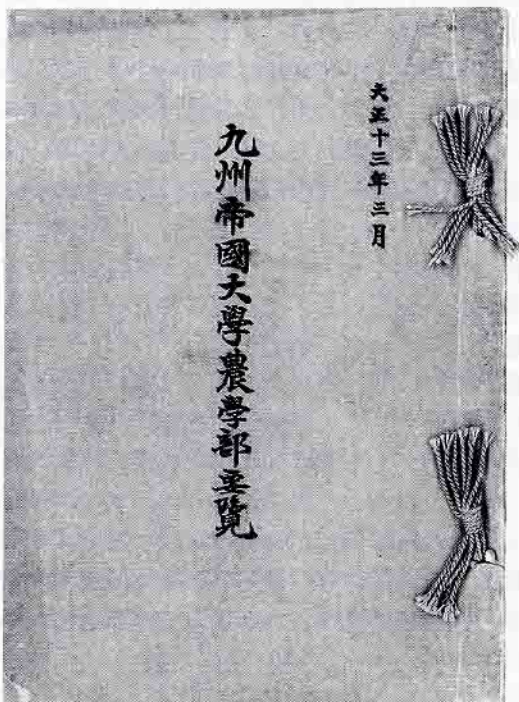 大正十三年三月
九州帝國大學農學部要覽